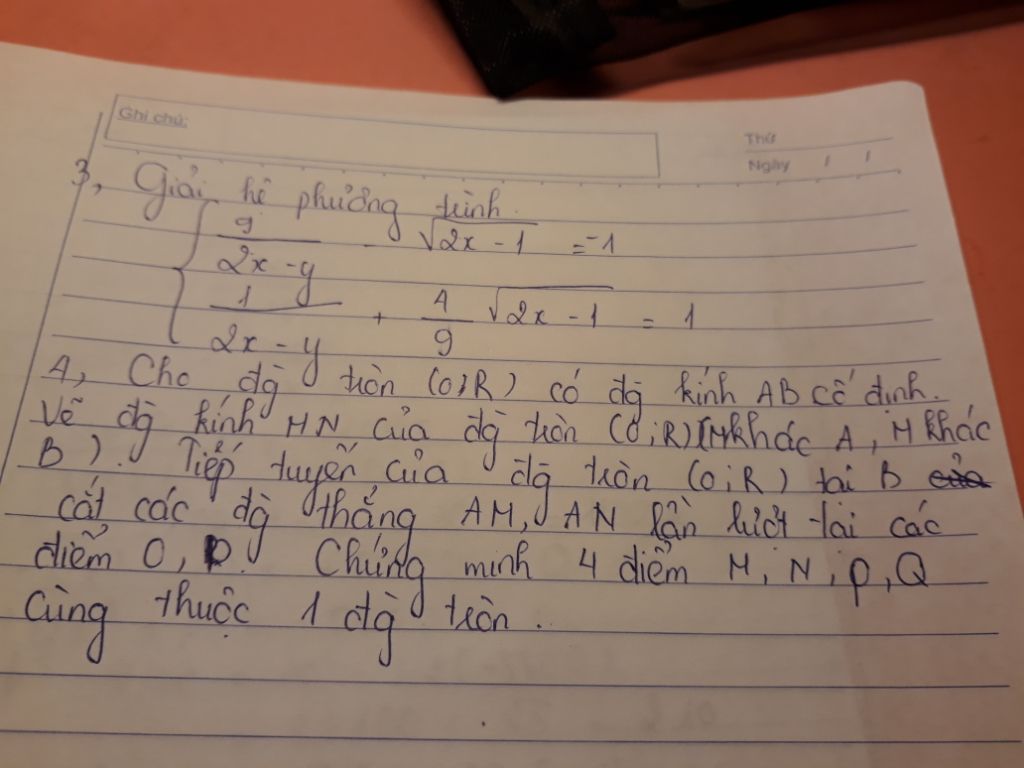 Ghi chú:
Thứ
Ngày / /
3, Giải hệ phường trình.
9/(2x - y) - √(2x - 1) = -1
1/(2x - y) + 4/9 √(2x - 1) = 1
4, Cho đg tròn (O;R) có đg kính AB cố định.
Vẽ đg kính MN của đg tròn (O;R) (M khác A, M khác
B). Tiếp tuyến của đg tròn (O;R) tại B
cắt các đg thẳng AM, AN lần lượt tại các
điểm O, P. Chứng minh 4 điểm M, N, P, Q
cùng thuộc 1 đg tròn.